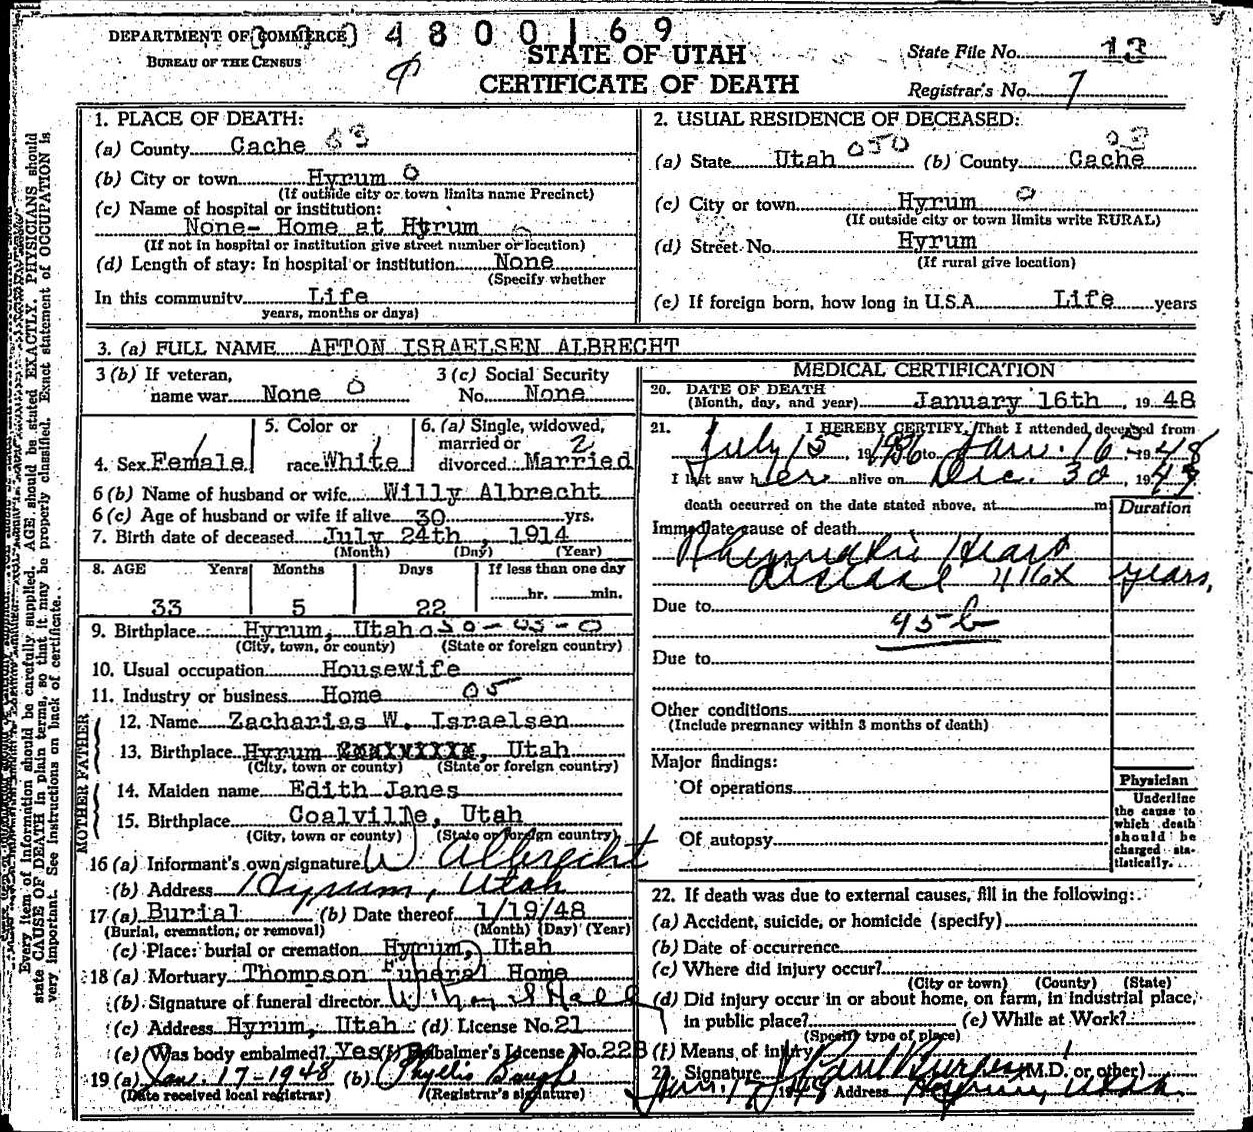 DEPARTMENT OF COMMERCE 4800169
BUREAU OF THE CENSUS
STATE OF UTAH
CERTIFICATE OF DEATH
State File No. 13
Registrar's No. 7
Every item of information should be carefully supplied. AGE should be stated EXACTLY. PHYSICIANS should
state CAUSE OF DEATH in plain terms, so that it may be properly classified. Exact statement of OCCUPATION is
very important. See instructions on back of certificate.
1. PLACE OF DEATH:
(a) County Cache 03
(b) City or town Hyrum 0
(If outside city or town limits name Precinct)
(c) Name of hospital or institution:
None- Home at Hyrum
(If not in hospital or institution give street number or location)
(d) Length of stay: In hospital or institution None
(Specify whether
In this community Life
years, months or days)
2. USUAL RESIDENCE OF DECEASED:
03
(a) State Utah 050 (b) County Cache
(c) City or town Hyrum 0
(If outside city or town limits write RURAL)
(d) Street No. Hyrum
(If rural give location)
(e) If foreign born, how long in U.S.A. Life years
3. (a) FULL NAME AFTON ISRAELSEN ALBRECHT
3 (b) If veteran,
name war None 0
3 (c) Social Security
No. None
4. Sex Female 1
5. Color or
race White 1
6. (a) Single, widowed,
married or 2
divorced Married
6 (b) Name of husband or wife Willy Albrecht
6 (c) Age of husband or wife if alive 30 yrs.
7. Birth date of deceased July 24th, 1914
(Month) (Day) (Year)
8. AGE Years Months Days If less than one day
hr. min.
33 5 22
9. Birthplace Hyrum, Utah 050-03-0
(City, town, or county) (State or foreign country)
10. Usual occupation Housewife
11. Industry or business Home 05
FATHER
12. Name Zacharias W. Israelsen
13. Birthplace Hyrum, Utah
(City, town or county) (State or foreign country)
MOTHER
14. Maiden name Edith Janes
15. Birthplace Coalville, Utah
(City, town or county) (State or foreign country)
16 (a) Informant's own signature W Albrecht
(b) Address Hyrum, Utah
17 (a) Burial (b) Date thereof 1/19/48
(Burial, cremation, or removal) (Month) (Day) (Year)
(c) Place: burial or cremation Hyrum, Utah
18 (a) Mortuary Thompson Funeral Home
(b) Signature of funeral director
(c) Address Hyrum, Utah (d) License No. 21
(e) Was body embalmed? Yes (f) Embalmer's License No. 228
19 (a) Jan. 17-1948 (b) Phyllis Baugh
(Date received local registrar) (Registrar's signature)
MEDICAL CERTIFICATION
20. DATE OF DEATH
(Month, day, and year) January 16th, 1948
21. I HEREBY CERTIFY, That I attended deceased from
July 15, 1936 to Jan. 16, 1948
I last saw her alive on Dec. 30, 1947
death occurred on the date stated above, at m
Duration
Immediate cause of death
Rheumatic Heart
disease 416X years,
Due to
95-b
Due to
Other conditions
(Include pregnancy within 3 months of death)
Major findings:
Of operations
Of autopsy
Physician
Underline
the cause to
which death
should be
charged sta-
tistically.
22. If death was due to external causes, fill in the following:
(a) Accident, suicide, or homicide (specify)
(b) Date of occurrence
(c) Where did injury occur?
(City or town) (County) (State)
(d) Did injury occur in or about home, on farm, in industrial place,
in public place? (e) While at Work?
(Specify type of place)
(f) Means of injury
23. Signature (M.D. or other)
Jan. 17, 1948 Address Hyrum, Utah.